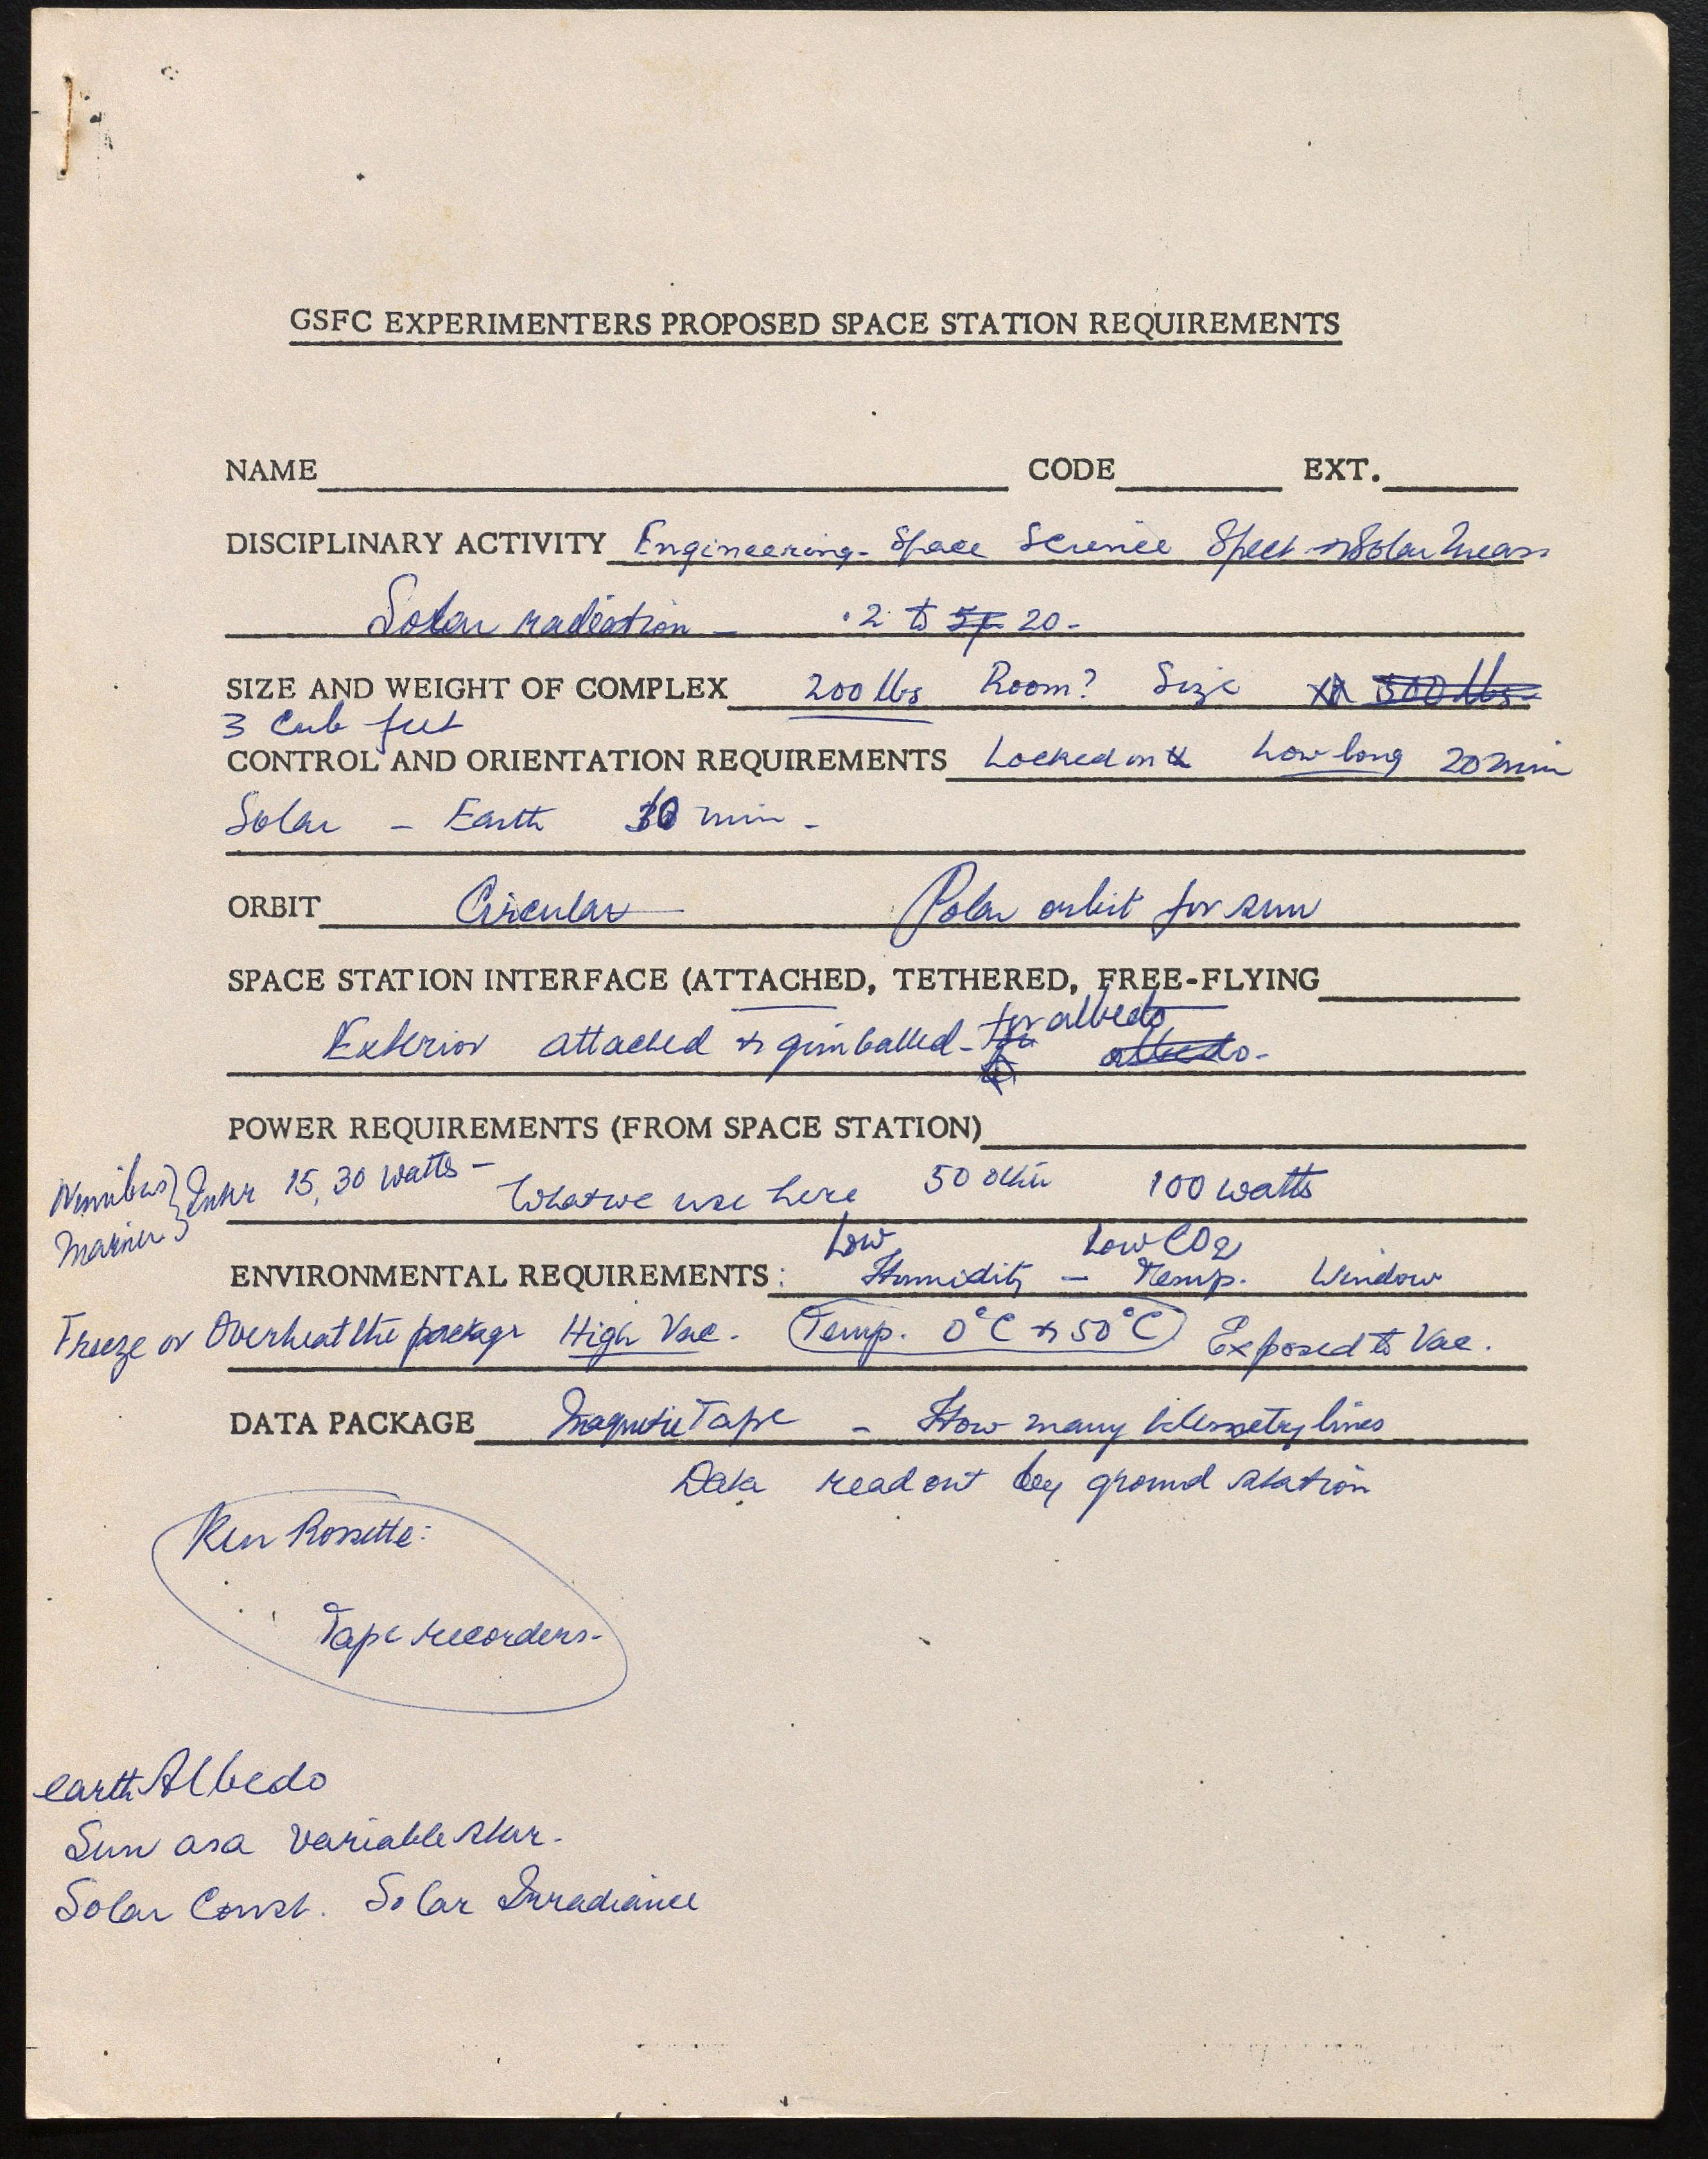 GSFC EXPERIMENTERS PROPOSED SPACE STATION REQUIREMENTS
NAME CODE EXT.
DISCIPLINARY ACTIVITY Engineering - Space Science Spect Solar Meas
Solar radiation - .2 to 20 -
SIZE AND WEIGHT OF COMPLEX 200 lbs Room? Size 300 lbs
3 Cub feet
CONTROL AND ORIENTATION REQUIREMENTS Locked on How long 20 min
Solar - Earth 30 min -
ORBIT Circular Polar orbit for sun
SPACE STATION INTERFACE (ATTACHED, TETHERED, FREE-FLYING
for albedo
Exterior attached & gimballed - albedo -
POWER REQUIREMENTS (FROM SPACE STATION)
Nimbus 15, 30 watts - What we use here 50 100 watts
Mariner
Low Low CO2
ENVIRONMENTAL REQUIREMENTS: Humidity - Temp. Window
Freeze or Overheat the package High Vac. Temp. 0°C to 50°C Exposed to Vac.
DATA PACKAGE Magnetic Tape - How many telemetry lines
Data read out by ground station
Ken Rossette:
Tape recorders -
earth Albedo
Sun as a variable star -
Solar Const. Solar Irradiance